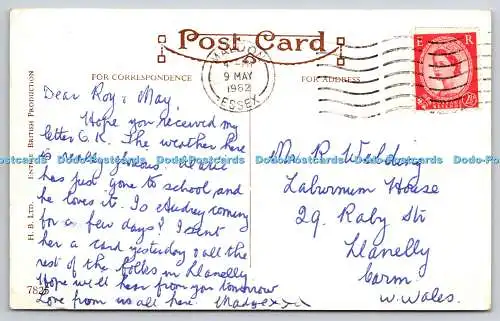 Post Card
FOR CORRESPONDENCE
FOR ADDRESS
MALDON
9 MAY
1962
ESSEX
E R
2½D
Dear Roy & May,
Hope you received my
letter O.K. The weather here
is
has just gone to school and
he loves it. Is Audrey coming
for a few days? I sent
her a card yesterday & all the
rest of the folks in Llanelly
Hope we'll hear from you tomorrow
Love from us all here.
M R
Laburnum House
29 Raby St
Llanelly
Carm
W. Wales.
H. B. LTD.
ENTIRE BRITISH PRODUCTION
7825
Dodo-Postcards Dodo-Postcards Dodo-Postcards Dodo-Postcards Dodo-Postcards Dodo-Postcards